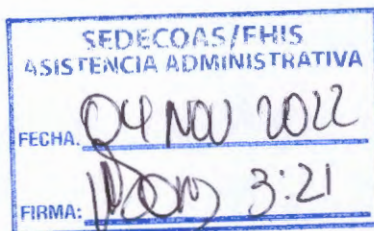 SEDECOAS/FHIS
ASISTENCIA ADMINISTRATIVA
FECHA: 04 NOV 2022
FIRMA: 3:21